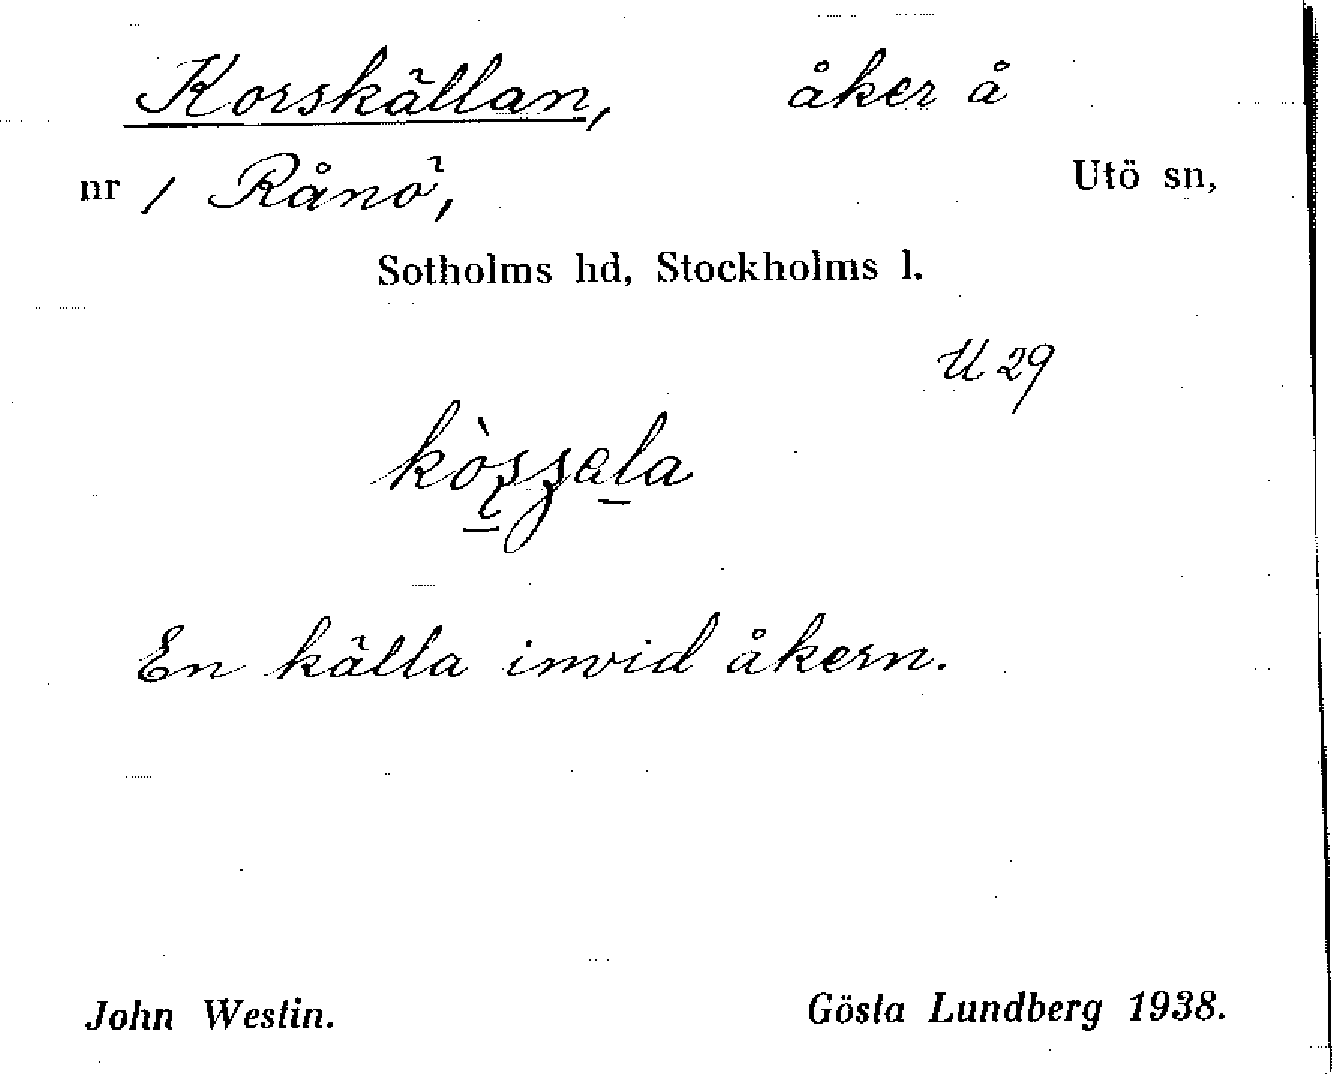 Korskällan, åker å
nr 1 Rånö, Utö sn,
Sotholms hd, Stockholms l.
U 29
En källa invid åkern.
John Westin. Gösta Lundberg 1938.